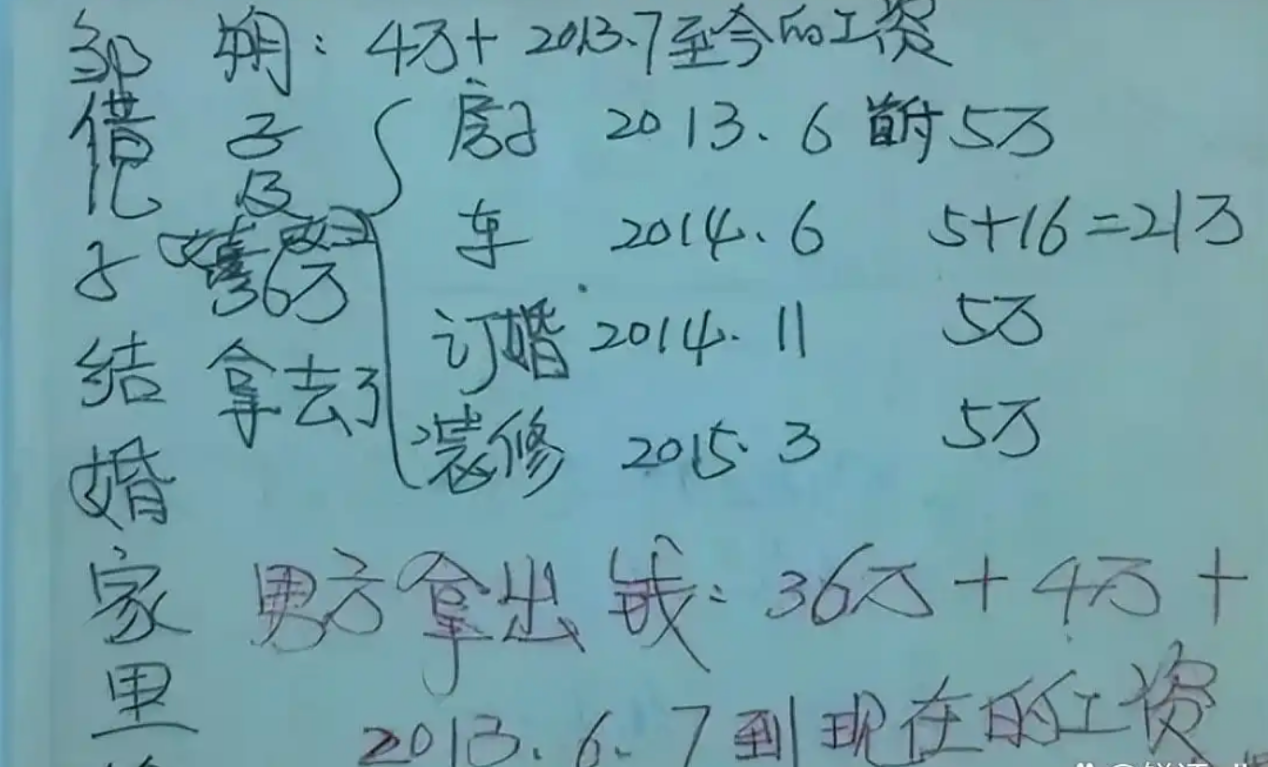 邹 朔：4万+2013.7至今的工资
借 子
化 及
子 36万
结 拿去了
婚
家
里
房子 2013.6 首付5万
车 2014.6 5+16=21万
订婚 2014.11 5万
装修 2015.3 5万
男方拿出钱：36万+4万+
2013.6.7到现在的工资